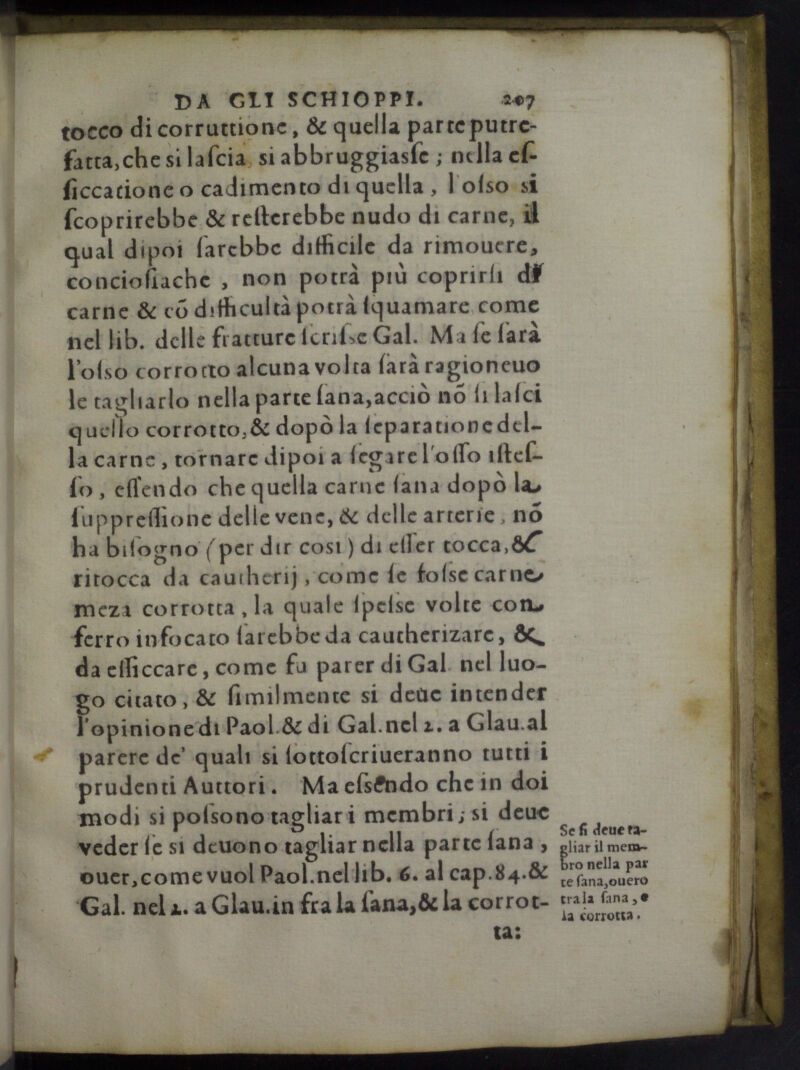 DA GLI SCHIOPPI. 207
tocco di corruttione, & quella parte putre-
fatta, che si laſcia si abbruggiasſe; nella eſ-
ſiccatione o cadimento di quella, l'oſso si
ſcoprirebbe & reſterebbe nudo di carne, il
qual dipoi ſarebbe difficile da rimouere,
concioſiache, non potrà più coprirſi di
carne & cõ difficultà potrà ſquamare come
nel lib. delle fratture ſcriſse Gal. Ma ſe ſarà
l'oſso corrotto alcuna volta ſarà ragioneuo
le tagliarlo nella parte ſana, acciò nõ ſi laſci
quello corrotto, & dopò la ſeparatione del-
la carne, tornare dipoi a ſegare l'oſſo iſteſ-
ſo, eſſendo che quella carne ſana dopò la
ſuppreſſione delle vene, & delle arterie, nõ
ha biſogno (per dir cosi) di eſſer tocca, &
ritocca da cautherij, come ſe foſse carne
meza corrotta, la quale ſpeſse volte con
ferro infocato ſarebbe da cautherizare, &
da eſſiccare, come fu parer di Gal nel luo-
go citato, & ſimilmente si deue intender
l'opinione di Paol. & di Gal. nel 2. a Glau. al
parere de' quali si ſottoſcriueranno tutti i
prudenti Auttori. Ma eſsendo che in doi
modi si poſsono tagliar i membri; si deue
veder ſe si deuono tagliar nella parte ſana,
ouer, come vuol Paol. nel lib. 6. al cap. 84. &
Gal. nel 2. a Glau. in fra la ſana, & la corrot-
ta:
Se ſi deue ta-
gliar il mem-
bro nella par
te ſana, ouero
tra la ſana, e
la corrotta.